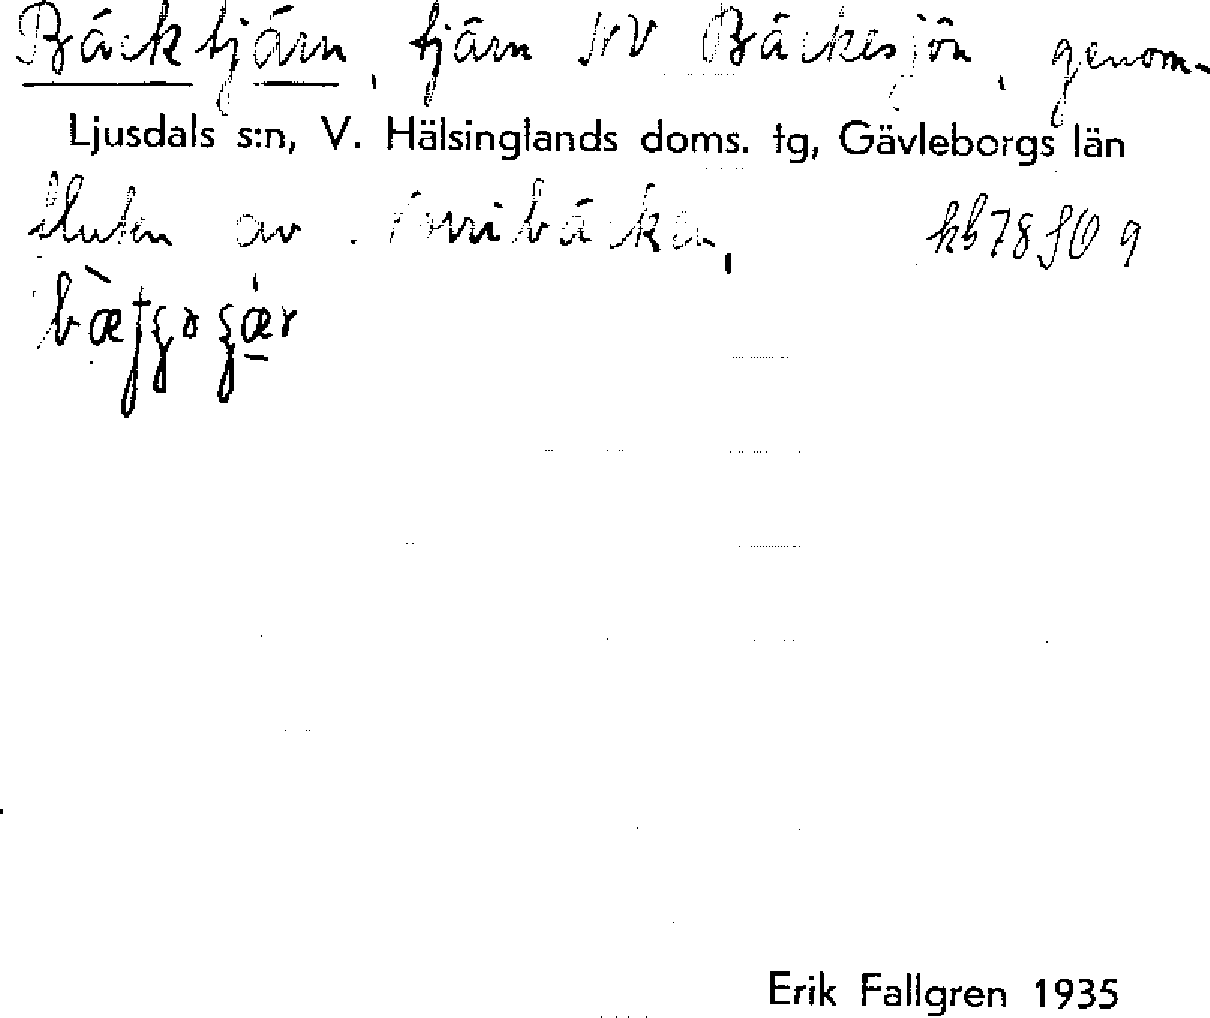 Bäcktjärn, tjärn NV Bäckesjön, genom-
Ljusdals s:n, V. Hälsinglands doms. tg, Gävleborgs län
fluten av bäcken,
Erik Fallgren 1935